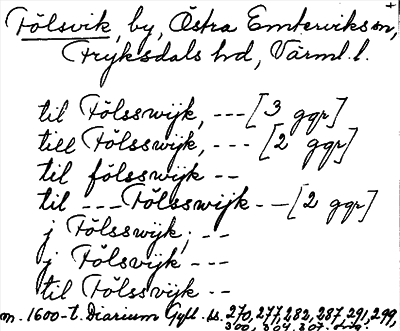 Fölsvik, by, Östra Emterviks sn,
Fryksdals hd, Värml. l.
til Fölsswijk, --- [3 ggr]
till Fölsswijk, --- [2 ggr]
til fölsswik --
til --- Fölsswijk -- [2 ggr]
j Fölsswijk, --
j Fölsvijk ---
til Fölssvijk --
m. 1600-t. Diarium Gyll. ss. 270, 277, 282, 287, 291, 299,
300, 304, 307